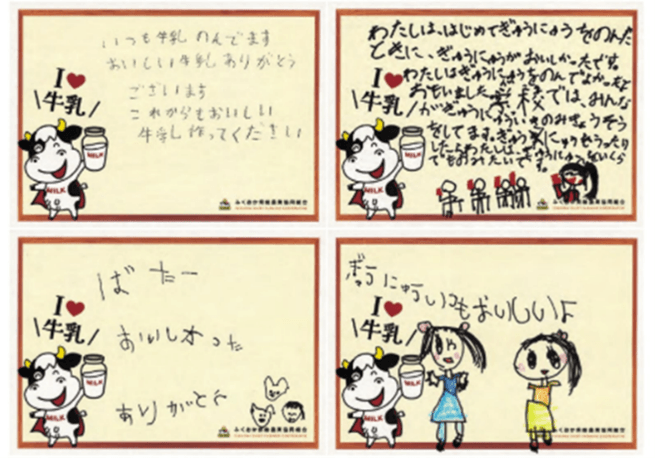 いつも牛乳のんでます
おいしい牛乳ありがとう
ございます
これからもおいしい
牛乳作ってください
I
牛乳
MILK
MILK
ふくおか県酪農業協同組合
わたしは、はじめてぎゅうにゅうをのんだ
ときに、ぎゅうにゅうがおいしかったです。
わたしはぎゅうにゅうをのんでよかったと
おもいました。学校では、みんな
がぎゅうにゅうの
をしてます。ぎゅうにゅうもうったり
したらわたしは、ぎゅうにゅうをいくら
でものみたいです。
I
牛乳
MILK
MILK
ふくおか県酪農業協同組合
ばたー
おいしかった
ありがとう
I
牛乳
MILK
MILK
ふくおか県酪農業協同組合
ぎゅうにゅういつもおいしいよ
I
牛乳
MILK
MILK
ふくおか県酪農業協同組合